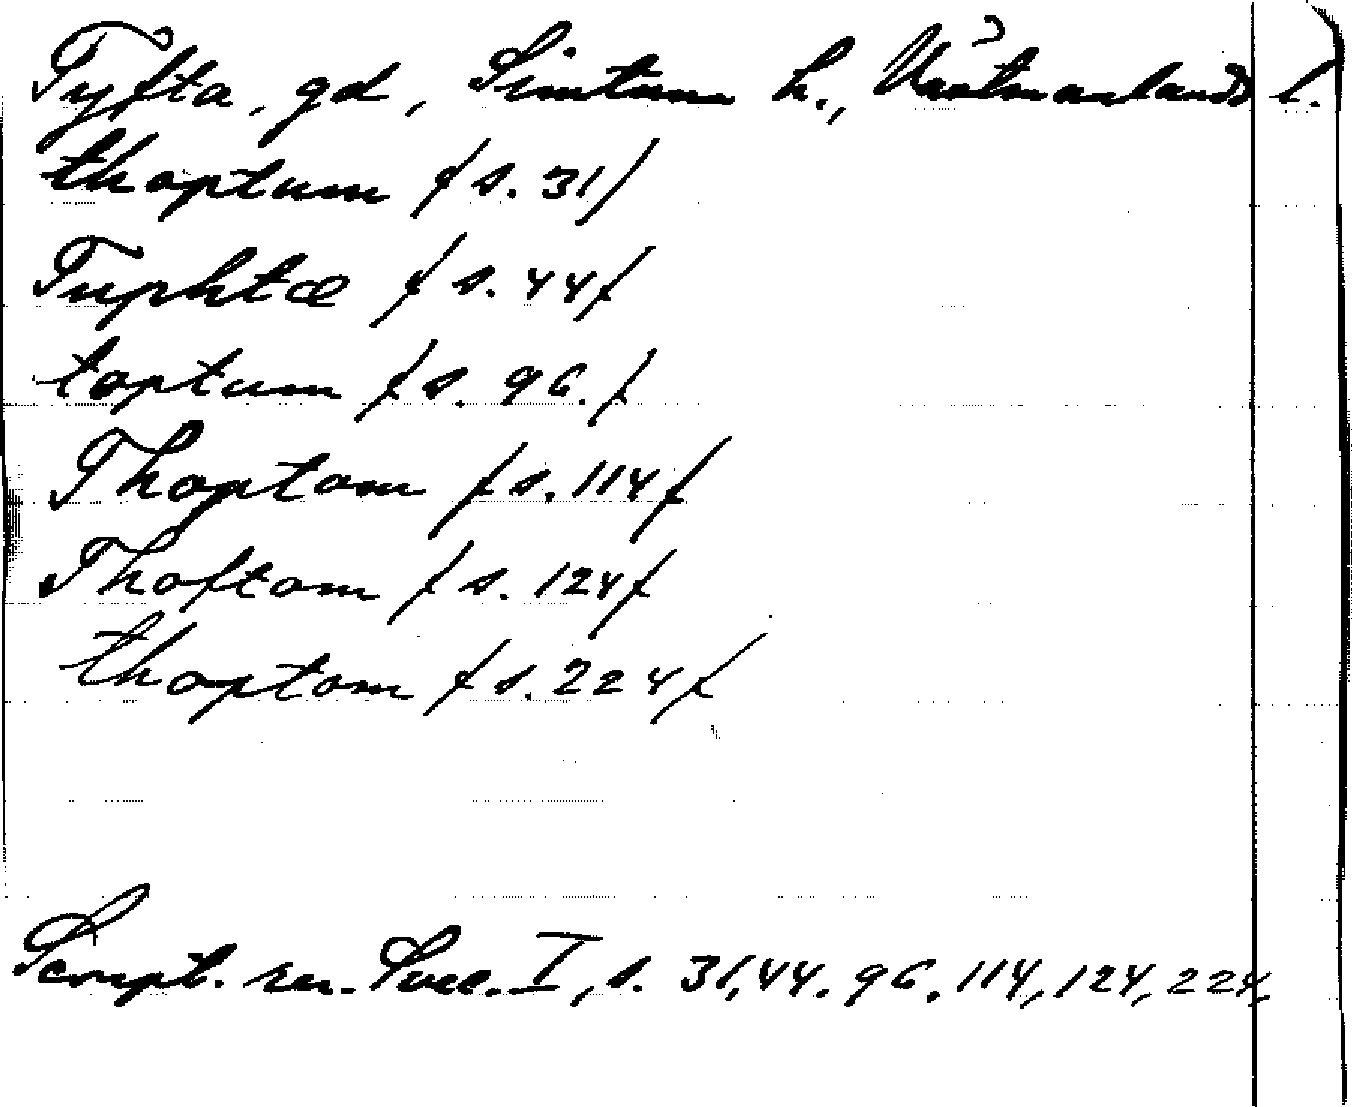 Tyfta, gd, Simtuna h., Västmanlands l.
thoptum /s. 31/
Tuphtæ /s. 44/
toptum /s. 96./
Thoptom /s. 114/
Thoftom /s. 124/
thoptom /s. 224/
Script. rer. Suec. I, s. 31, 44. 96. 114, 124, 224,